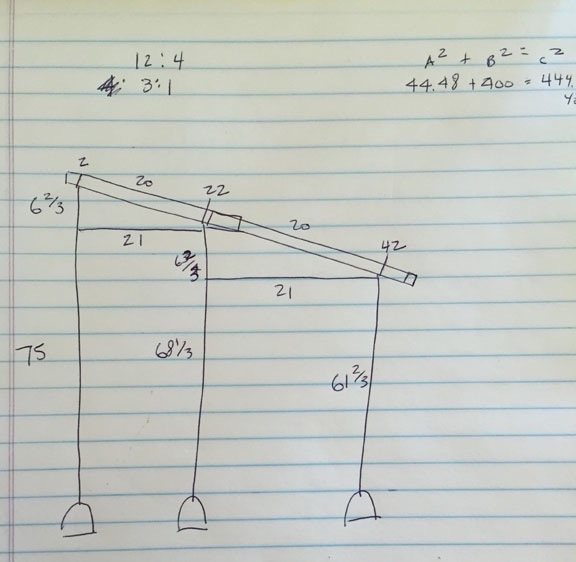 12:4
3:1
A² + B² = C²
44.48 + 400 = 444.
2
20
22
6 2/3
21
20
42
21
75
68 1/3
61 2/3